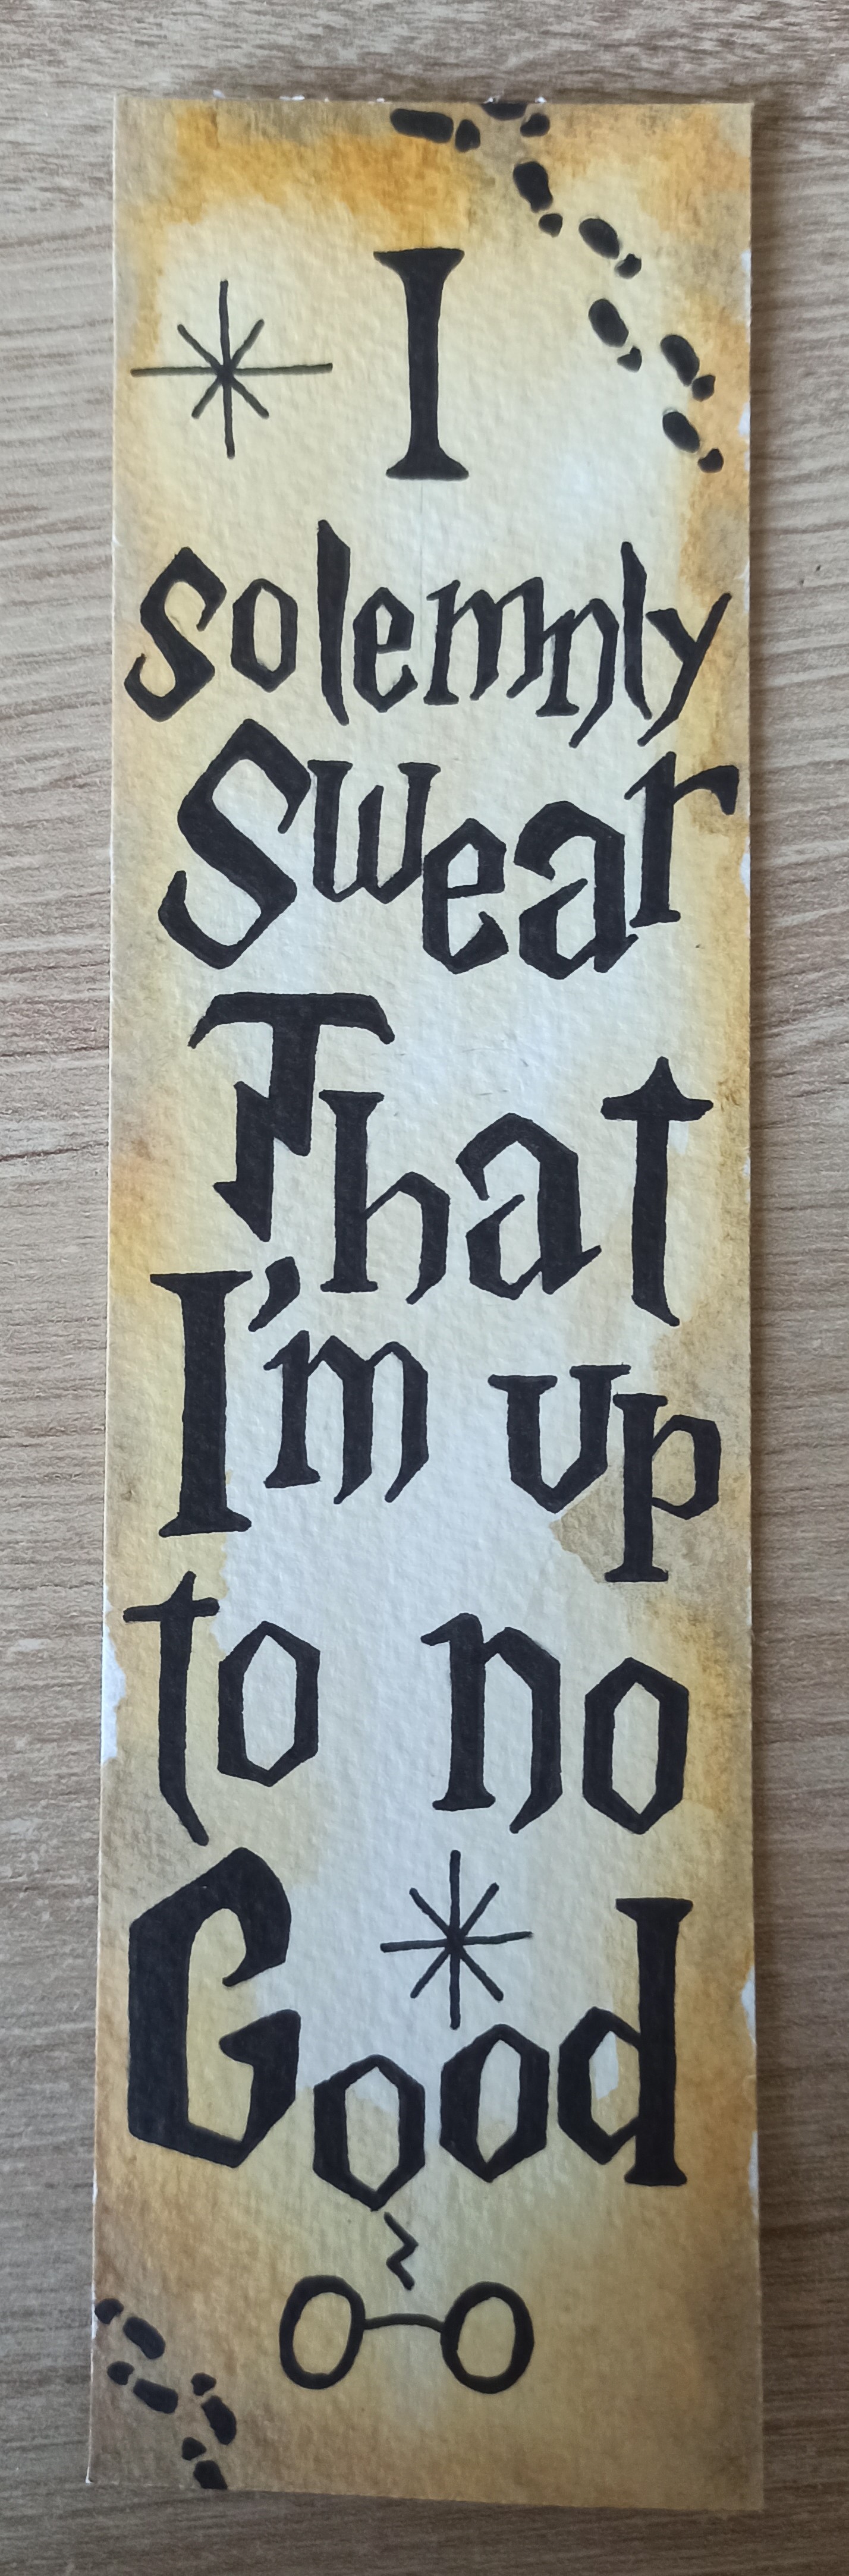 I
solemnly
Swear
That
I'm up
to no
Good